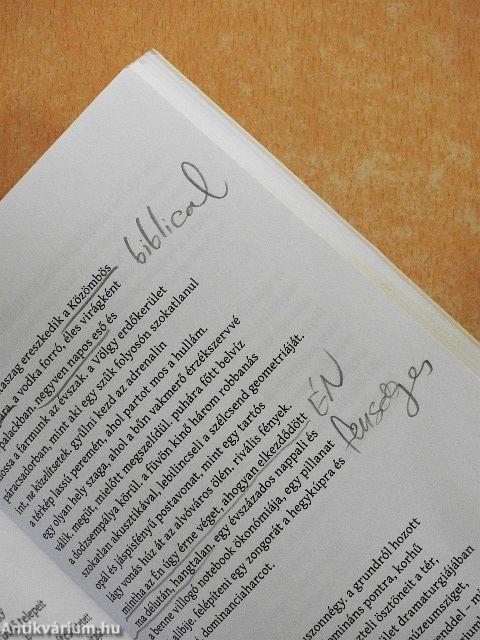 biblical
naszag ereszkedik a Közömbös
a vodka forró, éles virágként
palackban, negyven napos eső és
ossa a farmunk az évszak, a völgy erdőkerület
páracsadorban, mint aki egy szűk folyosón szokatlanul
int, ne közelítsetek, gyűlni kezd az adrenalin
a térkép lassú peremén, ahol partot mos a hullám.
egy olyan hely szaga, ahol a bűn vakmerő érzékszervvé
válik, megüt, mielőtt megszelídül, puhára főtt belvíz
a dodzsempálya körül, a füvön kinő három robbanás
szokatlan akusztikával, lebilincseli a szélcsend geometriáját.
opál és jáspisfényű postavonat, mint egy tartós
lágy vonás húz át az alvóváros ölén, rivális fények.
mintha az Én úgy érne véget, ahogyan elkezdődött
ÉN
ma délután hangtalan, egy évszázados nappali és
fenséges
a benne villogó notebook ökonómiája, egy pillanat
albije, felépíteni egy zongorát a hegykúpra és
dominanciaharcot.
uszonnégy, a grundról hozott
omináns pontra, korhű
ztali ösztöneit a tér,
zet dramaturgiájában
úzeumsziget,
eddel – mi
telepeit
Antikvárium.hu